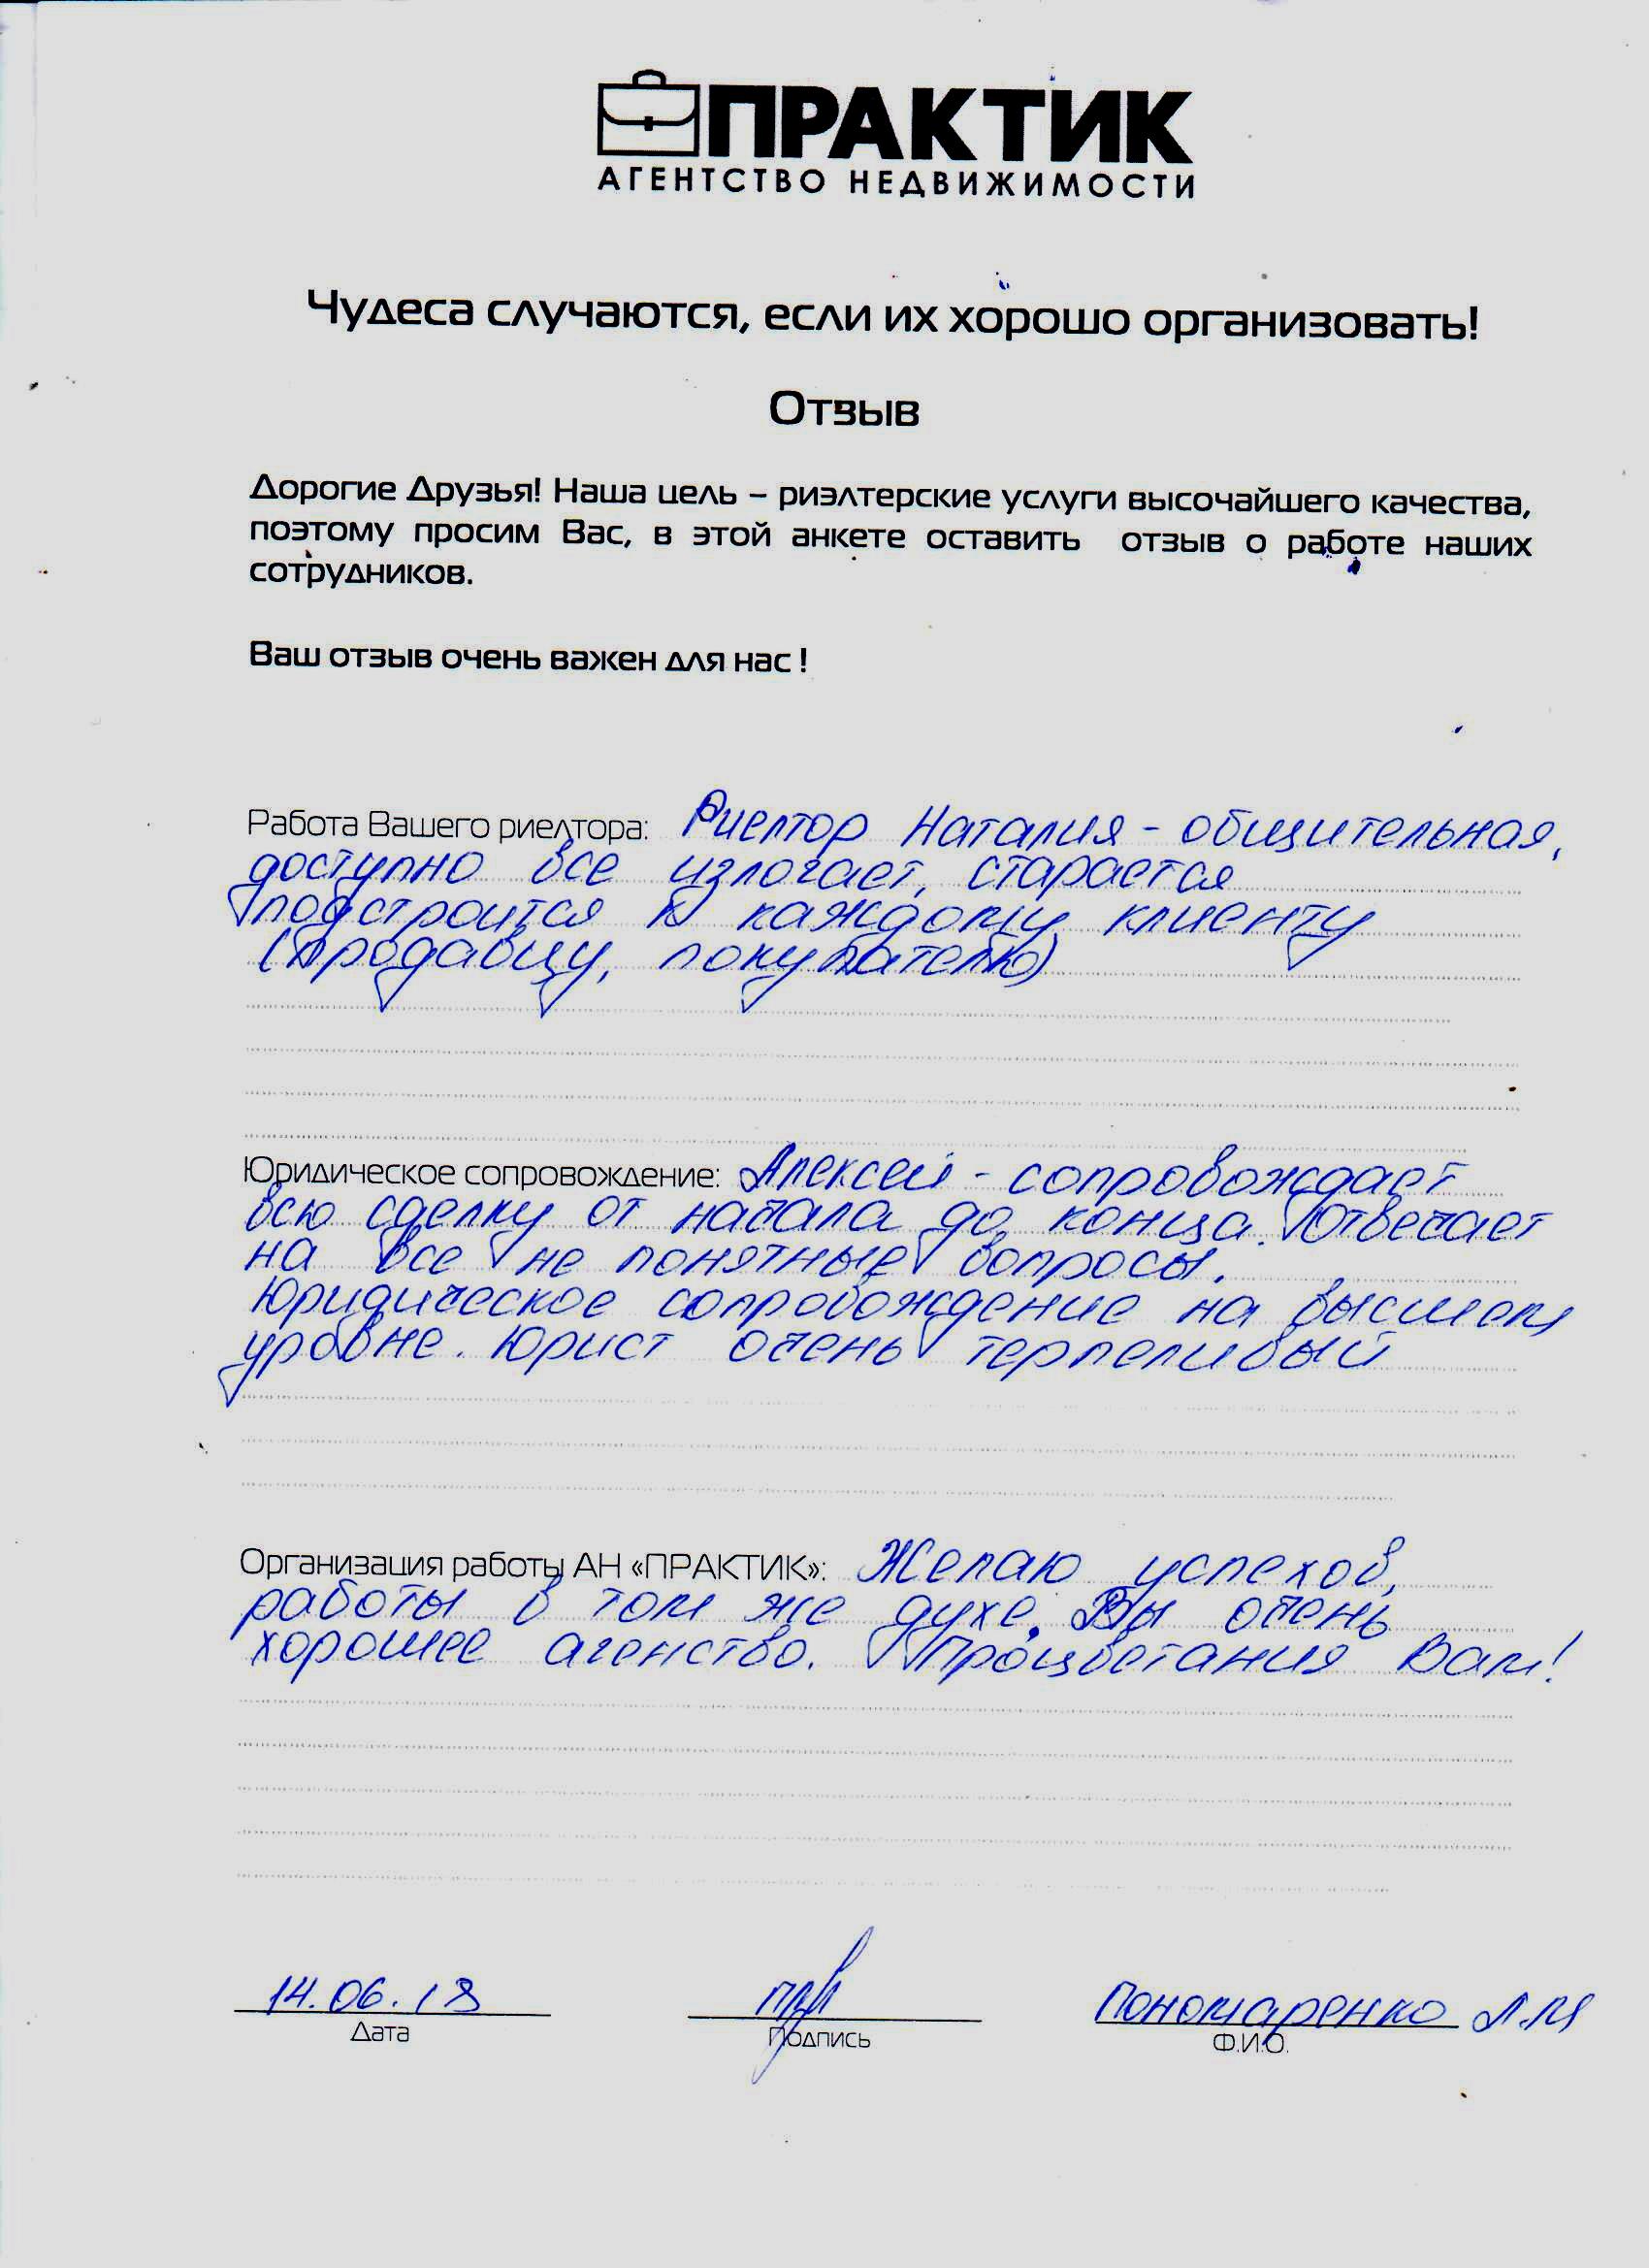 ПРАКТИК
АГЕНТСТВО НЕДВИЖИМОСТИ
Чудеса случаются, если их хорошо организовать!
Отзыв
Дорогие Друзья! Наша цель – риэлтерские услуги высочайшего качества,
поэтому просим Вас, в этой анкете оставить отзыв о работе наших
сотрудников.
Ваш отзыв очень важен для нас !
Работа Вашего риелтора: Риелтор Наталия - общительная,
доступно все излогает, старается
подстроится к каждому клиенту
(продавцу, покупателю)
Юридическое сопровождение: Алексей - сопровождает
всю сделку от начала до конца. Отвечает
на все не понятные вопросы.
Юридическое сопровождение на высшем
уровне. Юрист очень терпеливый
Организация работы АН «ПРАКТИК»: Желаю успехов,
работы в том же духе. Вы очень
хорошее агенство. Процветания Вам!
14.06.18 Пономаренко Л.М
Дата Подпись Ф.И.О.